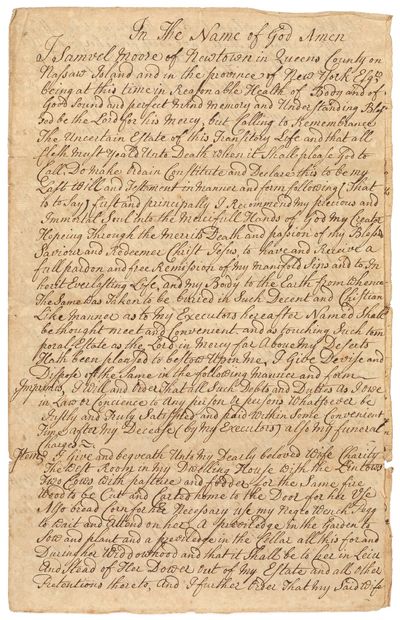 In The Name of God Amen
I Samuel Moore of Newtown in Queens County on
Nassaw Island and in the province of New York Esqr
being at this time in Reasonable Health of Body and of
Good Sound and perfect Mind Memory and Understanding Bles
God be the Lord for his Mercy, but Calling to Remembrance
The Uncertain Estate of this Transitory Life and that all
Flesh must Yeald Unto Death when it Shall please God to
Call, Do make ordain Constitute and Declare this to be my
Last Will and Testament in manner and form following (That
is to Say) first and principally I Recommend my precious and
Immortal Soul into the Mercifull Hands of God my Creator
Hopeing Through the merits Death and passion of my Bless
Saviour and Redeemer Christ Jesus to have and Receive a
full pardon and free Remission of my manifold Sins and to In
herit Everlasting Life, and my Body to the Earth from Whence
The Same was Taken to be buried in Such Decent and Christian
Like manner as to my Executors hereafter Named Shall
be thought meet and Convenient and as touching Such tem
poral Estate as the Lord in Mercy far Above my Deserts
Hath been pleased to bestow Upon me, I Give Devise and
Dispose of the Same in the following manner and form
Imprimis, I Will and order That all Such Debts and Dutys as I owe
in Law or Concience to Any person or persons Whatsoever be
Justly and Truly Satisfied and paid Within Some Convenient
Time after my Decease (by my Executors) also my funeral
Charges
Item, I Give and bequeath Unto my Dearly beloved Wife Charity
The West Room in my Dwelling House With the
Two Cows With pasture and fodder for the Same fire
Wood to be Cut and Carted home to the Door for her Use
Also bread Corn for her Necessary use my Negro Wench Pegg
to Wait and Attend on her A priveledge in the Garden to
Sow and plant and a priviledge in the Cellar all this for and
During her Widdowhood and that it Shall be to her in Leiu
And stead of Her Dower out of my Estate and all other
Pretentions thereto, And I further order That my Said Wife